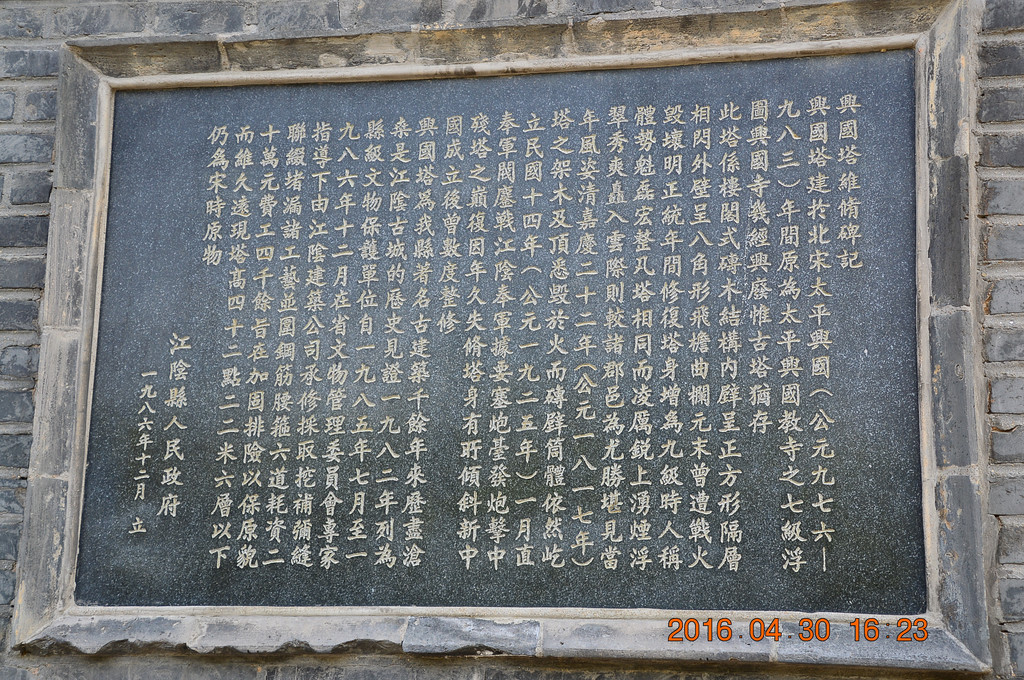 興國塔維脩碑記
興國塔建於北宋太平興國（公元九七六—
九八三）年間原為太平興國教寺之七級浮
圖興國寺幾經興廢惟古塔猶存
此塔係樓閣式磚木結構內壁呈正方形隔層
相閃外壁呈八角形飛檐曲欄元末曾遭戰火
毀壞明正統年間修復塔身增為九級時人稱
體勢魁磊宏整凡塔相同而凌厲銳上湧煙浮
翠秀爽矗入雲際則較諸郡邑為尤勝堪見當
年風姿清嘉慶二十二年（公元一八一七年）
塔之架木及頂悉毀於火而磚壁筒體依然屹
立民國十四年（公元一九二五年）一月直
奉軍閥鏖戰江陰奉軍據要塞炮臺發炮擊中
殘塔之巔復因年久失脩塔身有所傾斜新中
國成立後曾數度整修
興國塔為我縣著名古建築千餘年來歷盡滄
桑是江陰古城的歷史見證一九八二年列為
縣級文物保護單位自一九八五年七月至一
九八六年十二月在省文物管理委員會專家
指導下由江陰建築公司承修採取挖補彌縫
聯綴堵漏諸工藝並圍鋼筋腰箍六道耗資二
十萬元費工四千餘旨在加固排險以保原貌
而維久遠現塔高四十二點二二米六層以下
仍為宋時原物
江陰縣人民政府
一九八六年十二月 立
2016.04.30 16:23